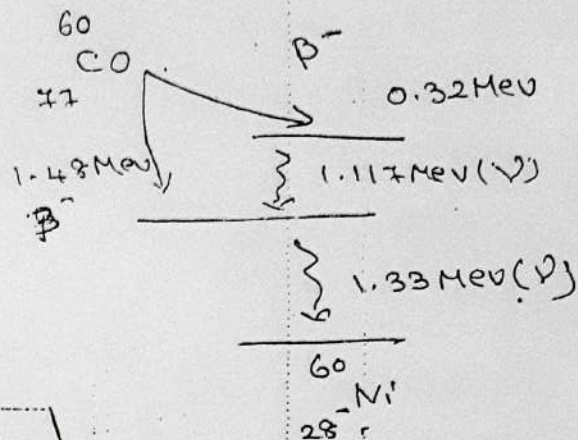 60
CO
77
β⁻
0.32Mev
1.48Mev
β⁻
1.117Mev(γ)
1.33Mev(γ)
60
Ni
28